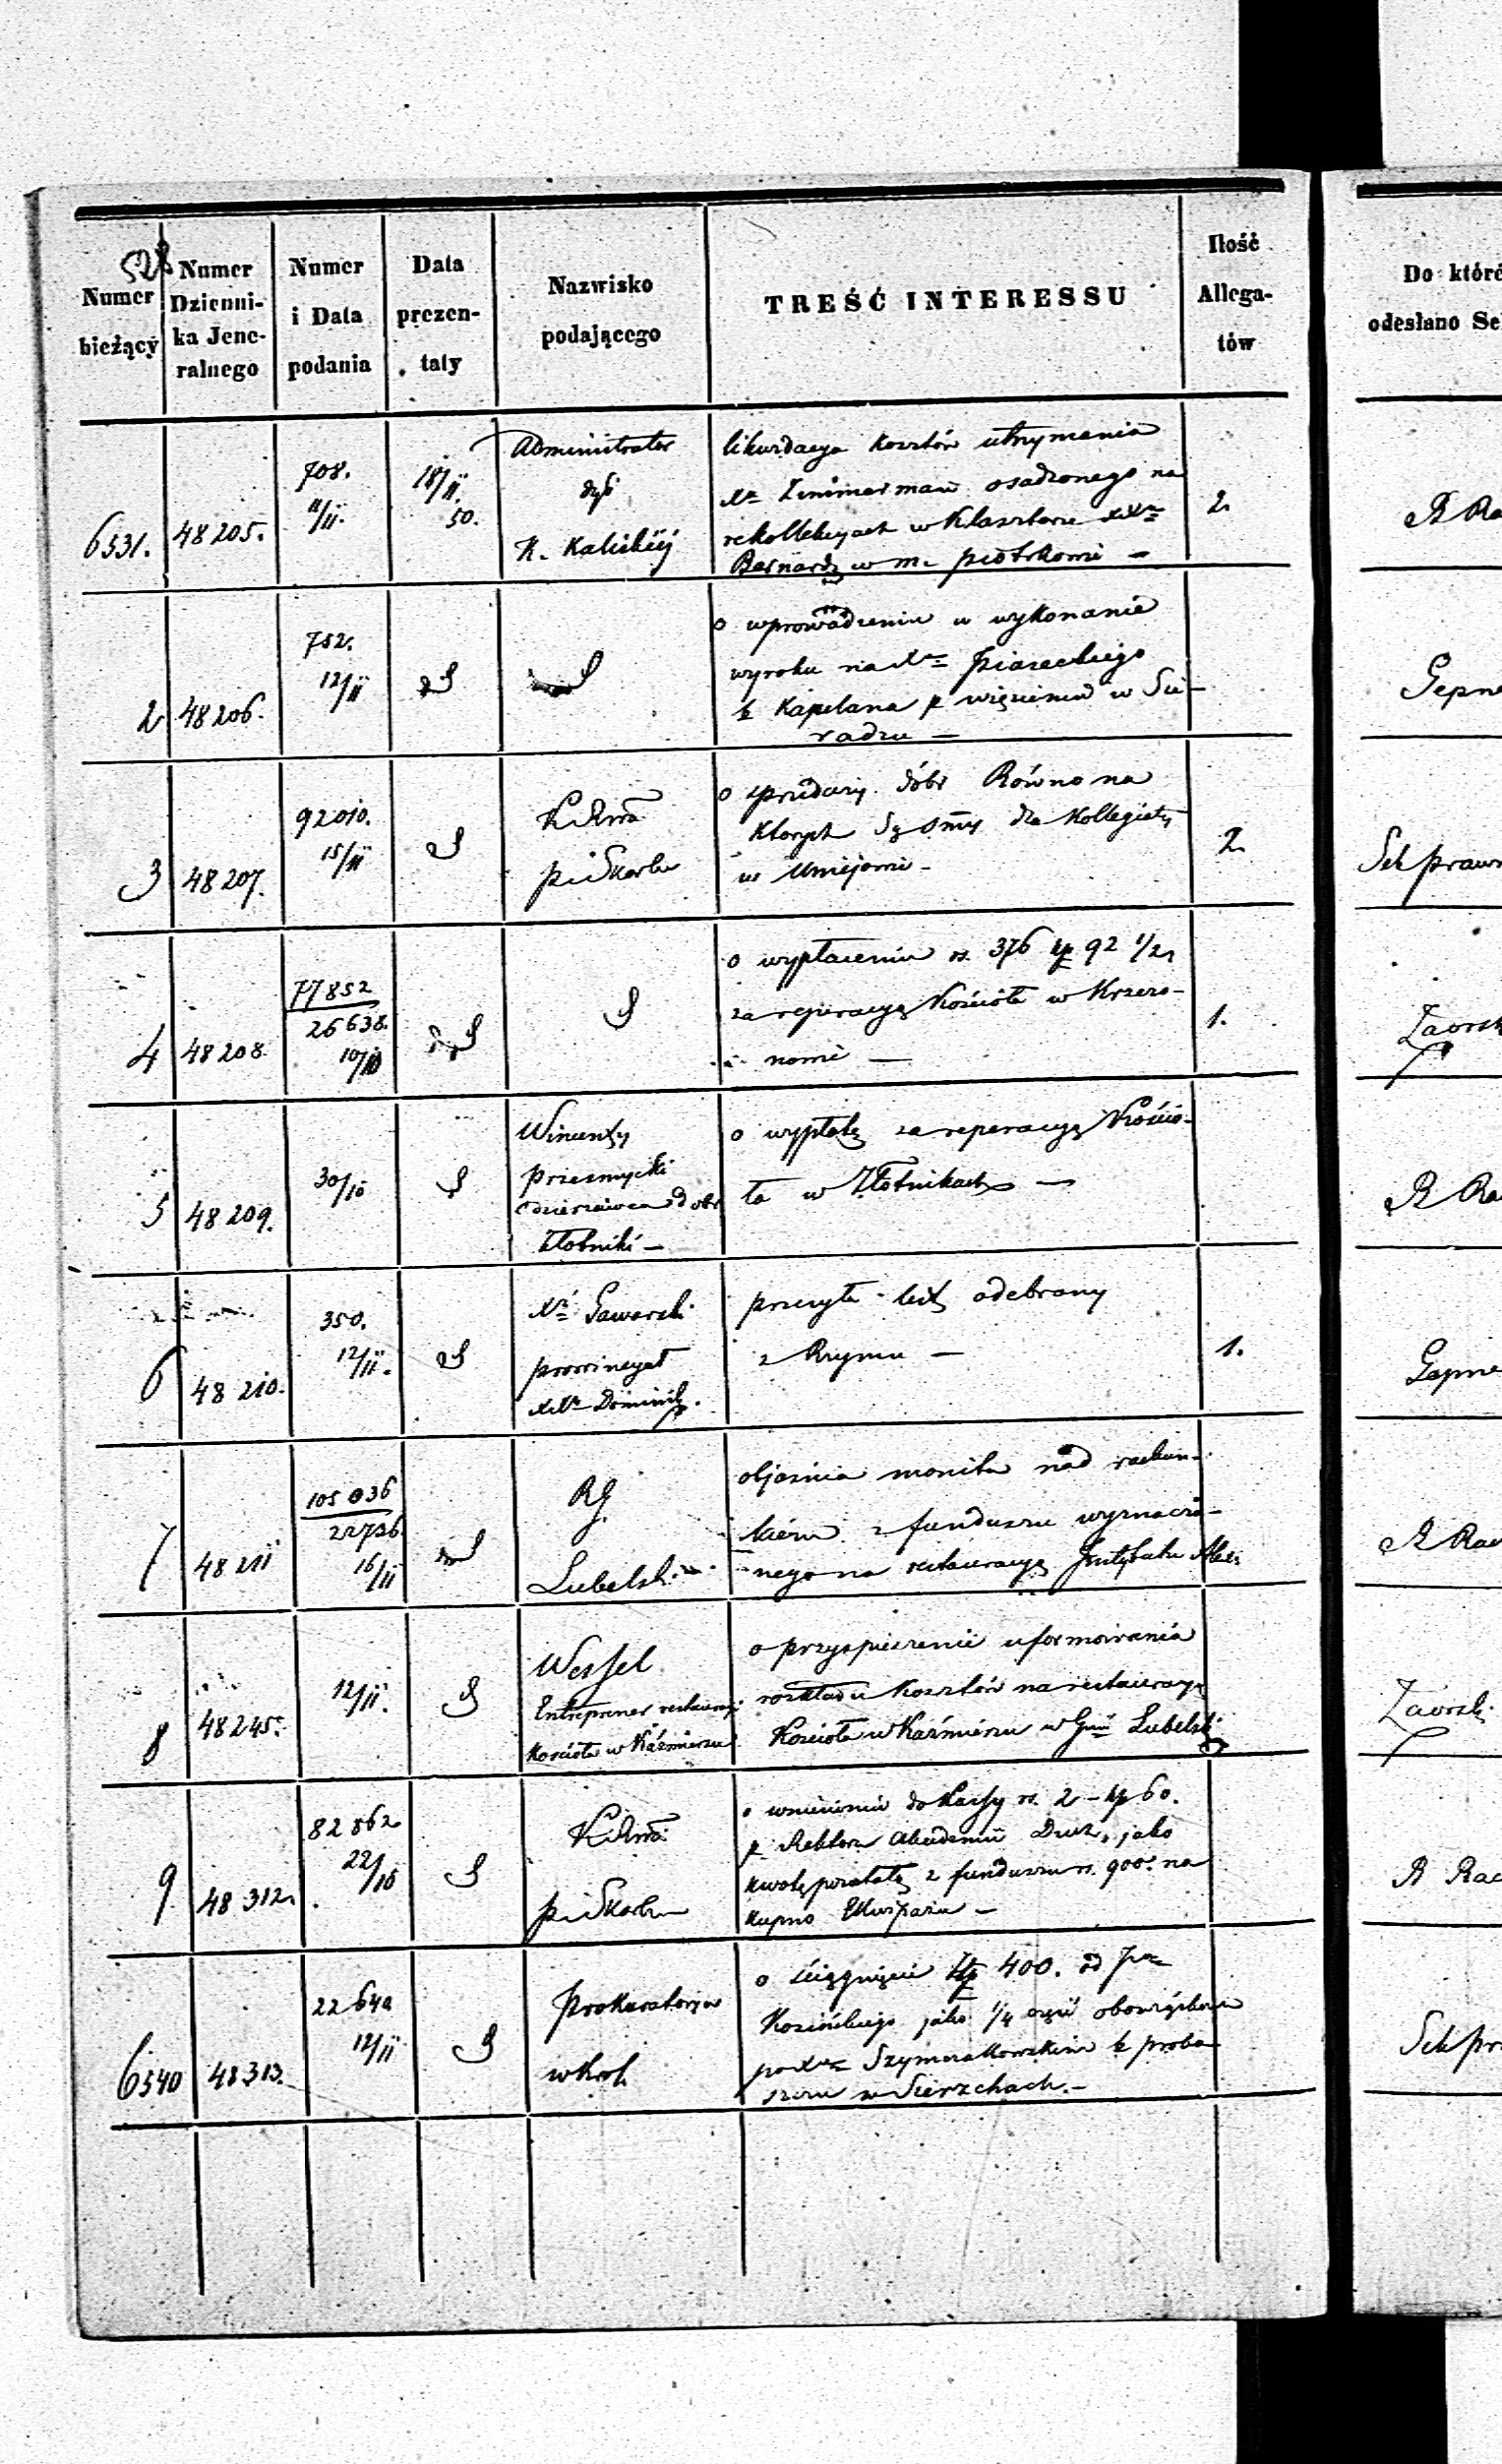 528
Numer bieżący
Numer Dzienni- ka Jene- ralnego
Numer i Data podania
Data prezen- taty
Nazwisko podającego
TREŚĆ INTERESSU
Ilość Allega- tów
Do któr
odesłano Se
6531. 48205. 708. 11/11. 18/11. 50.
Administrator
dyi
K. Kaliskiéj
likwidacya kosztów utrzymania
Xa Zimmerman osadzonego na
rekollekcyach w Klasztorze XXw
Bernardy w m. piotrkowie —
2.
R Ra
2 48206. 752. 12/11
o wprowadzeniu w wykonanie
wyroku na Xa Piaseckiego
b Kapelana p więzieniu w Sie-
radzu —
Gepne
3 48207. 92010. 15/11
K. Rwa
p i Skarbu
o sprzedaży dóbr Równo na
których są summy dla Kollegiaty
w Uniejowie -
2.
Sek praw
4 48208. 77852 26638. 10/10
o wypłaceniu rs. 376 kp 92 1/2
za reperacyę Kościoła w Krzero-
nowie —
1.
Zaorsk
5 48209. 30/10
Wincenty
Przesmycki
dzierżawca dobr
Złotniki —
o wypłatę za reperacyę Kościo-
ła w Złotnikach —
R Ra
6 48210. 350. 12/11.
Xa Gaworski
prowincyał
XXw Dominik.
przesyła list odebrany
z Rzymu —
1.
Gepne
7 48211 105036 22726. 16/11
RG.
Lubelski
objaśnia monita nad rachun-
kiem z funduszu wyznaczo-
nego na restauracyę Instytutu
R Rac
8 48245. 12/11.
Wessel
Entreprener restauracyi
Kościoła w Kaźmierzu
o przyspieszenie uformowania
rozkładu kosztów na restauracyę
Kościoła w Kaźmierzu w Gnii Lubelski
Zaorski
9 48312. 82862 22/10
K. Rwa
p i Skarbu
o wniesieniu do Kassy rs. 2 - kp 60.
p Rektora Akademii Duch, jako
kwotę pozostałą z funduszu rs. 900. na
kupno
R Rac
6540 48313. 22640 12/11
Prokuratorya
w Król.
o ściągnięcie złp 400. od Pna
Kozińskiego jako 1/4 część obowiązkow
po Xe Szymrakowskim b probo-
szczu w Sierzchach. -
Sek pr